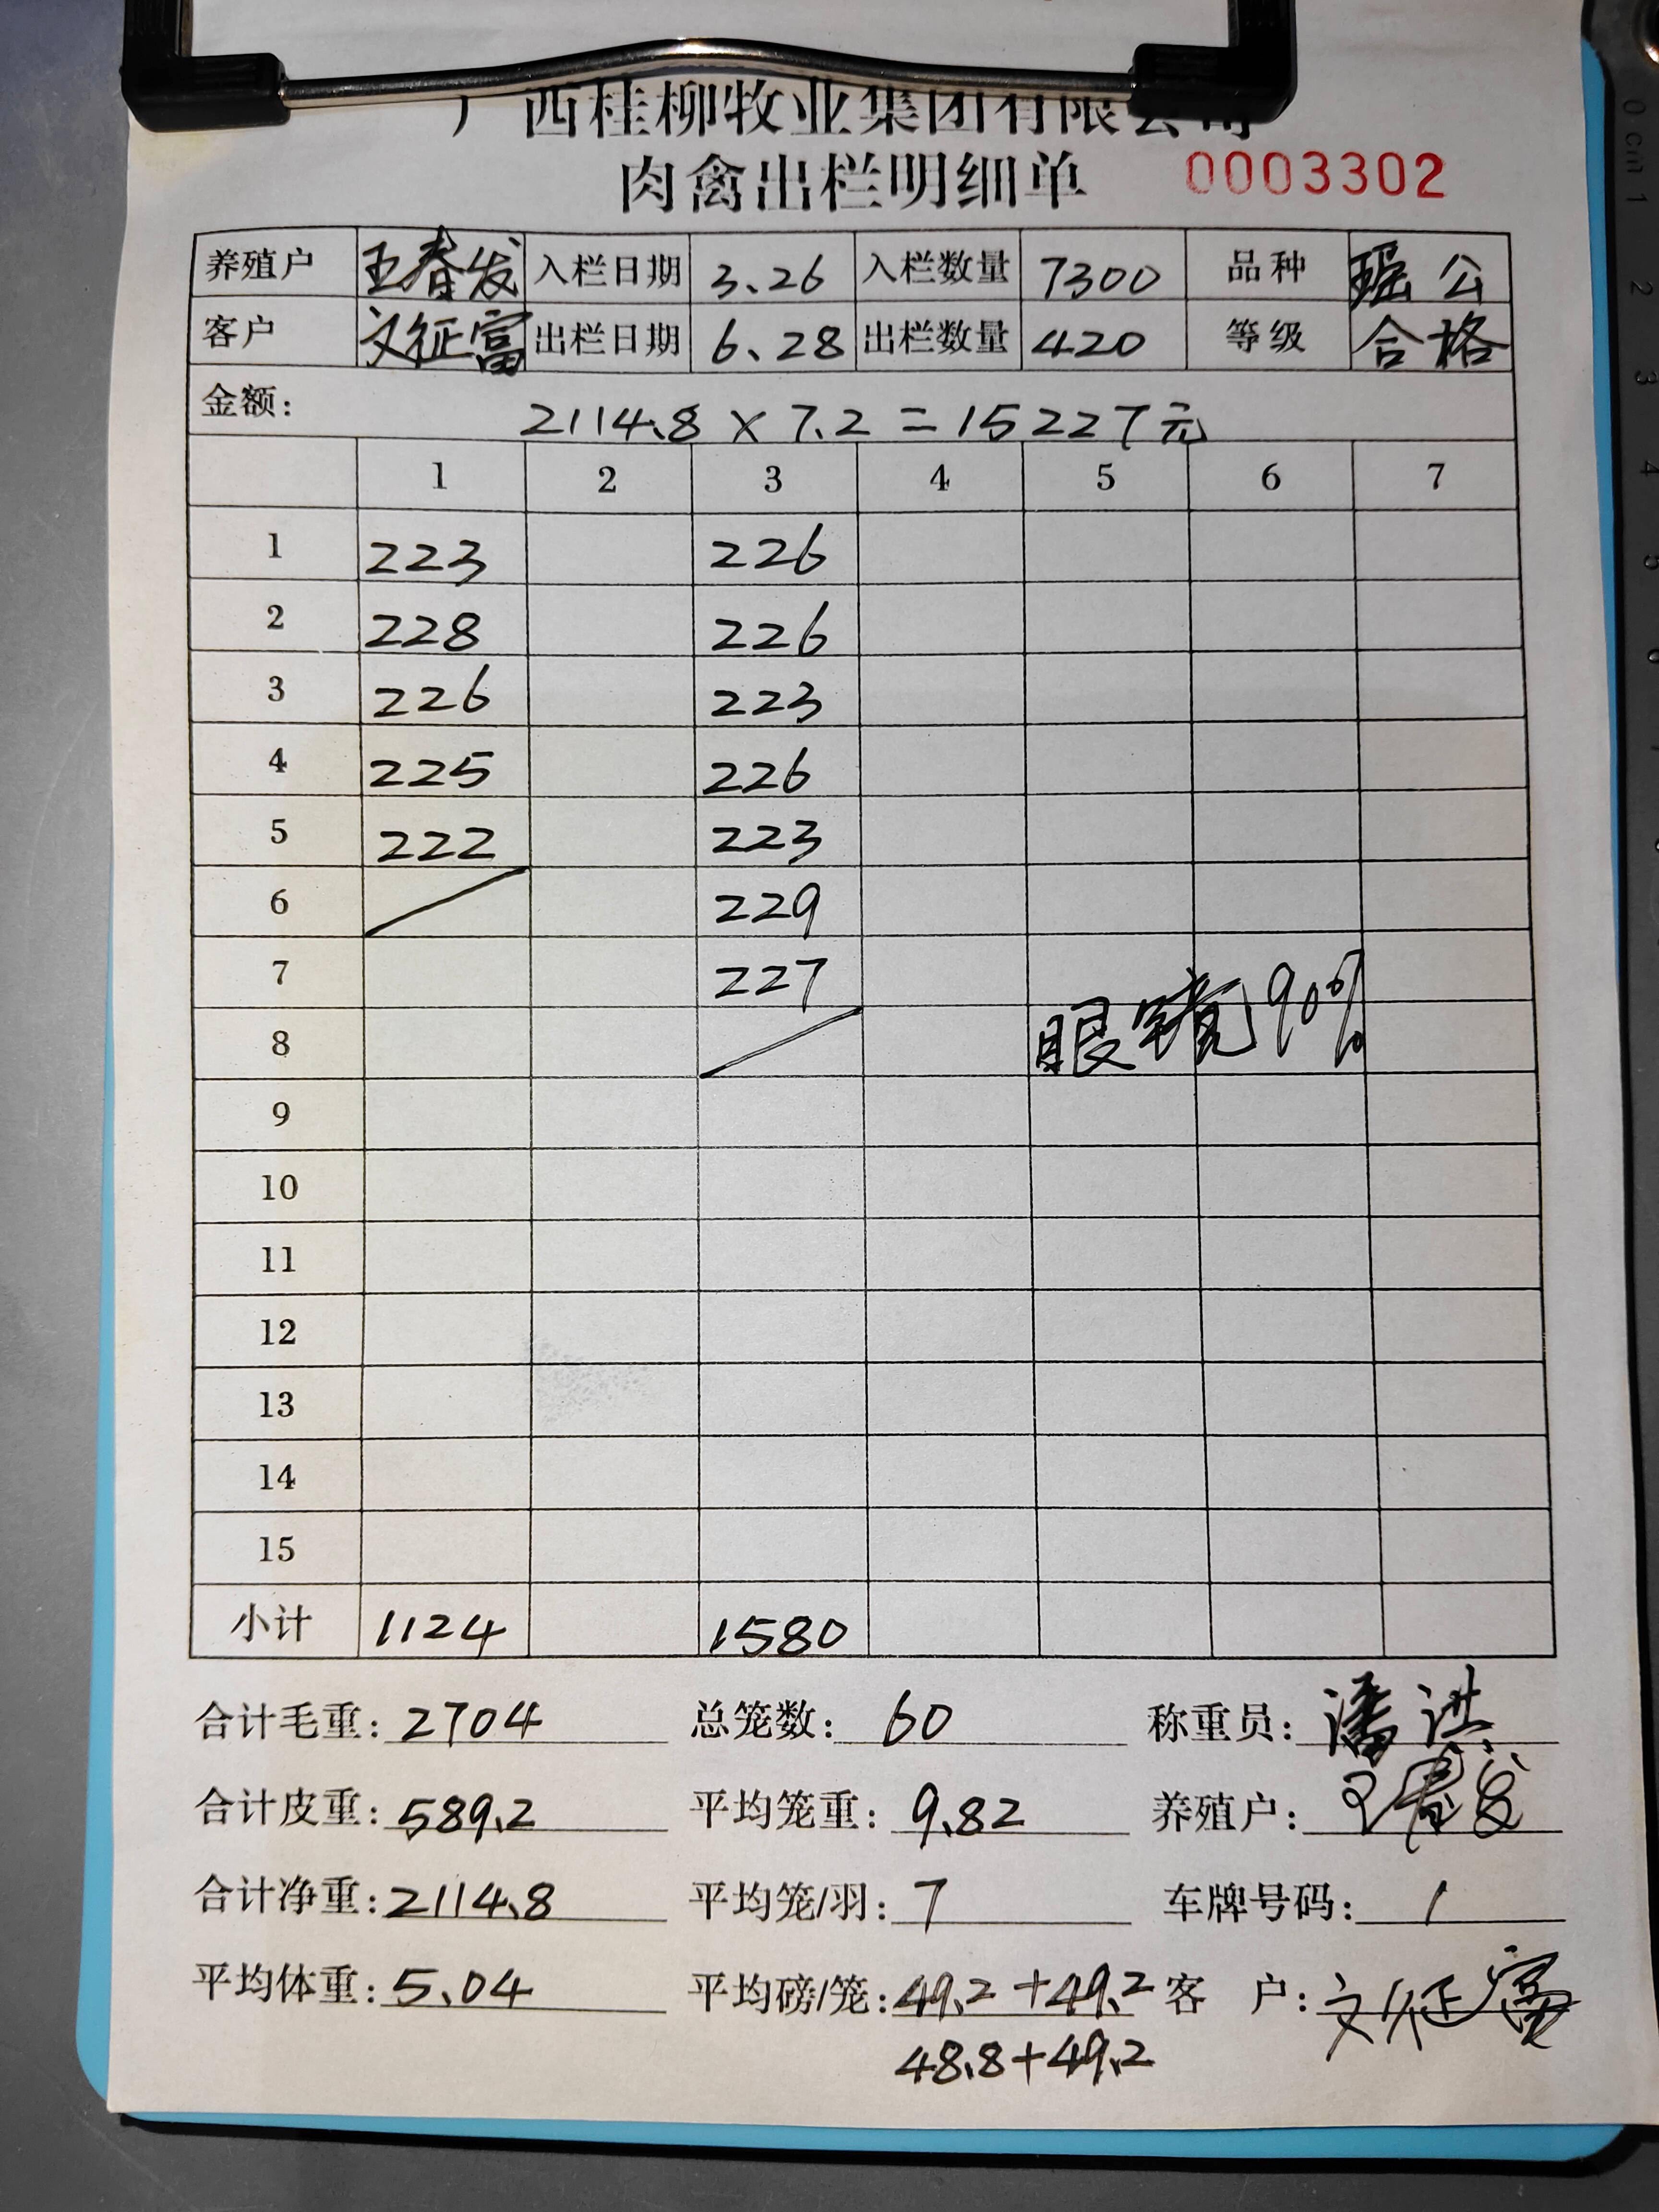 广西桂柳牧业集团有限公司
肉禽出栏明细单 0003302
养殖户 王春发 入栏日期 3.26 入栏数量 7300 品种 瑶公
客户 文征富 出栏日期 6.28 出栏数量 420 等级 合格
金额: 2114.8 × 7.2 = 15227元
1 2 3 4 5 6 7
1 223 226
2 228 226
3 226 223
4 225 226
5 222 223
6 229
7 227
8 眼镜90%
9
10
11
12
13
14
15
小计 1124 1580
合计毛重: 2704 总笼数: 60 称重员: 潘洪
合计皮重: 589.2 平均笼重: 9.82 养殖户: 王春发
合计净重: 2114.8 平均笼/羽: 7 车牌号码: 1
平均体重: 5.04 平均磅/笼: 49.2+49.2 客 户: 文征富
48.8+49.2
0 cm 1
2
3
4
5
6